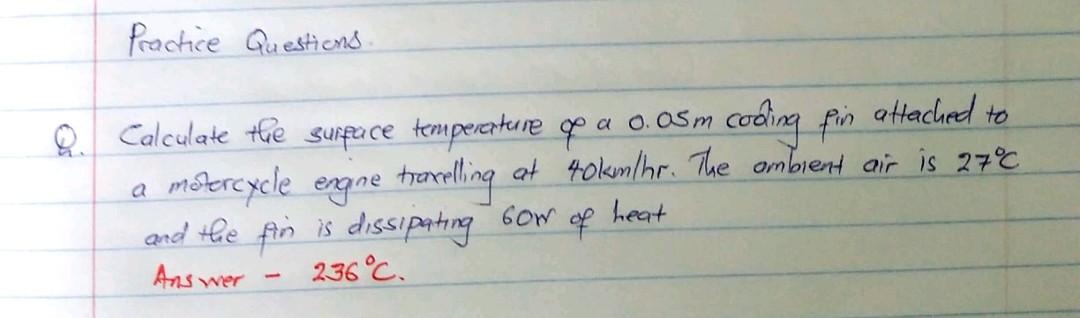 Practice Questions.
Q. Calculate the surface temperature of a 0.05m cooling fin attached to
a motorcycle engine travelling at 40km/hr. The ambient air is 27°C
and the fin is dissipating 60W of heat
Answer - 236°C.